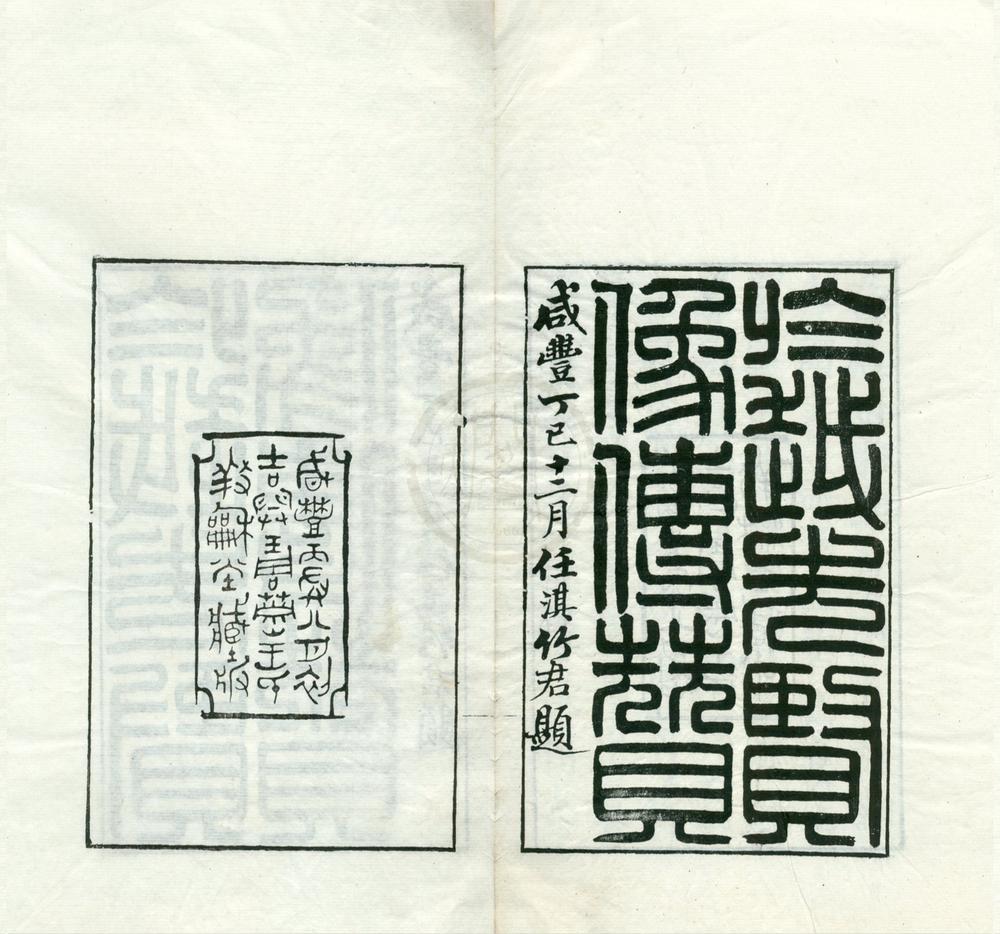 於越先賢
像傳贊
咸豐丁巳十二月任淇竹君題
咸豐丙辰八月刻
養龢堂藏版